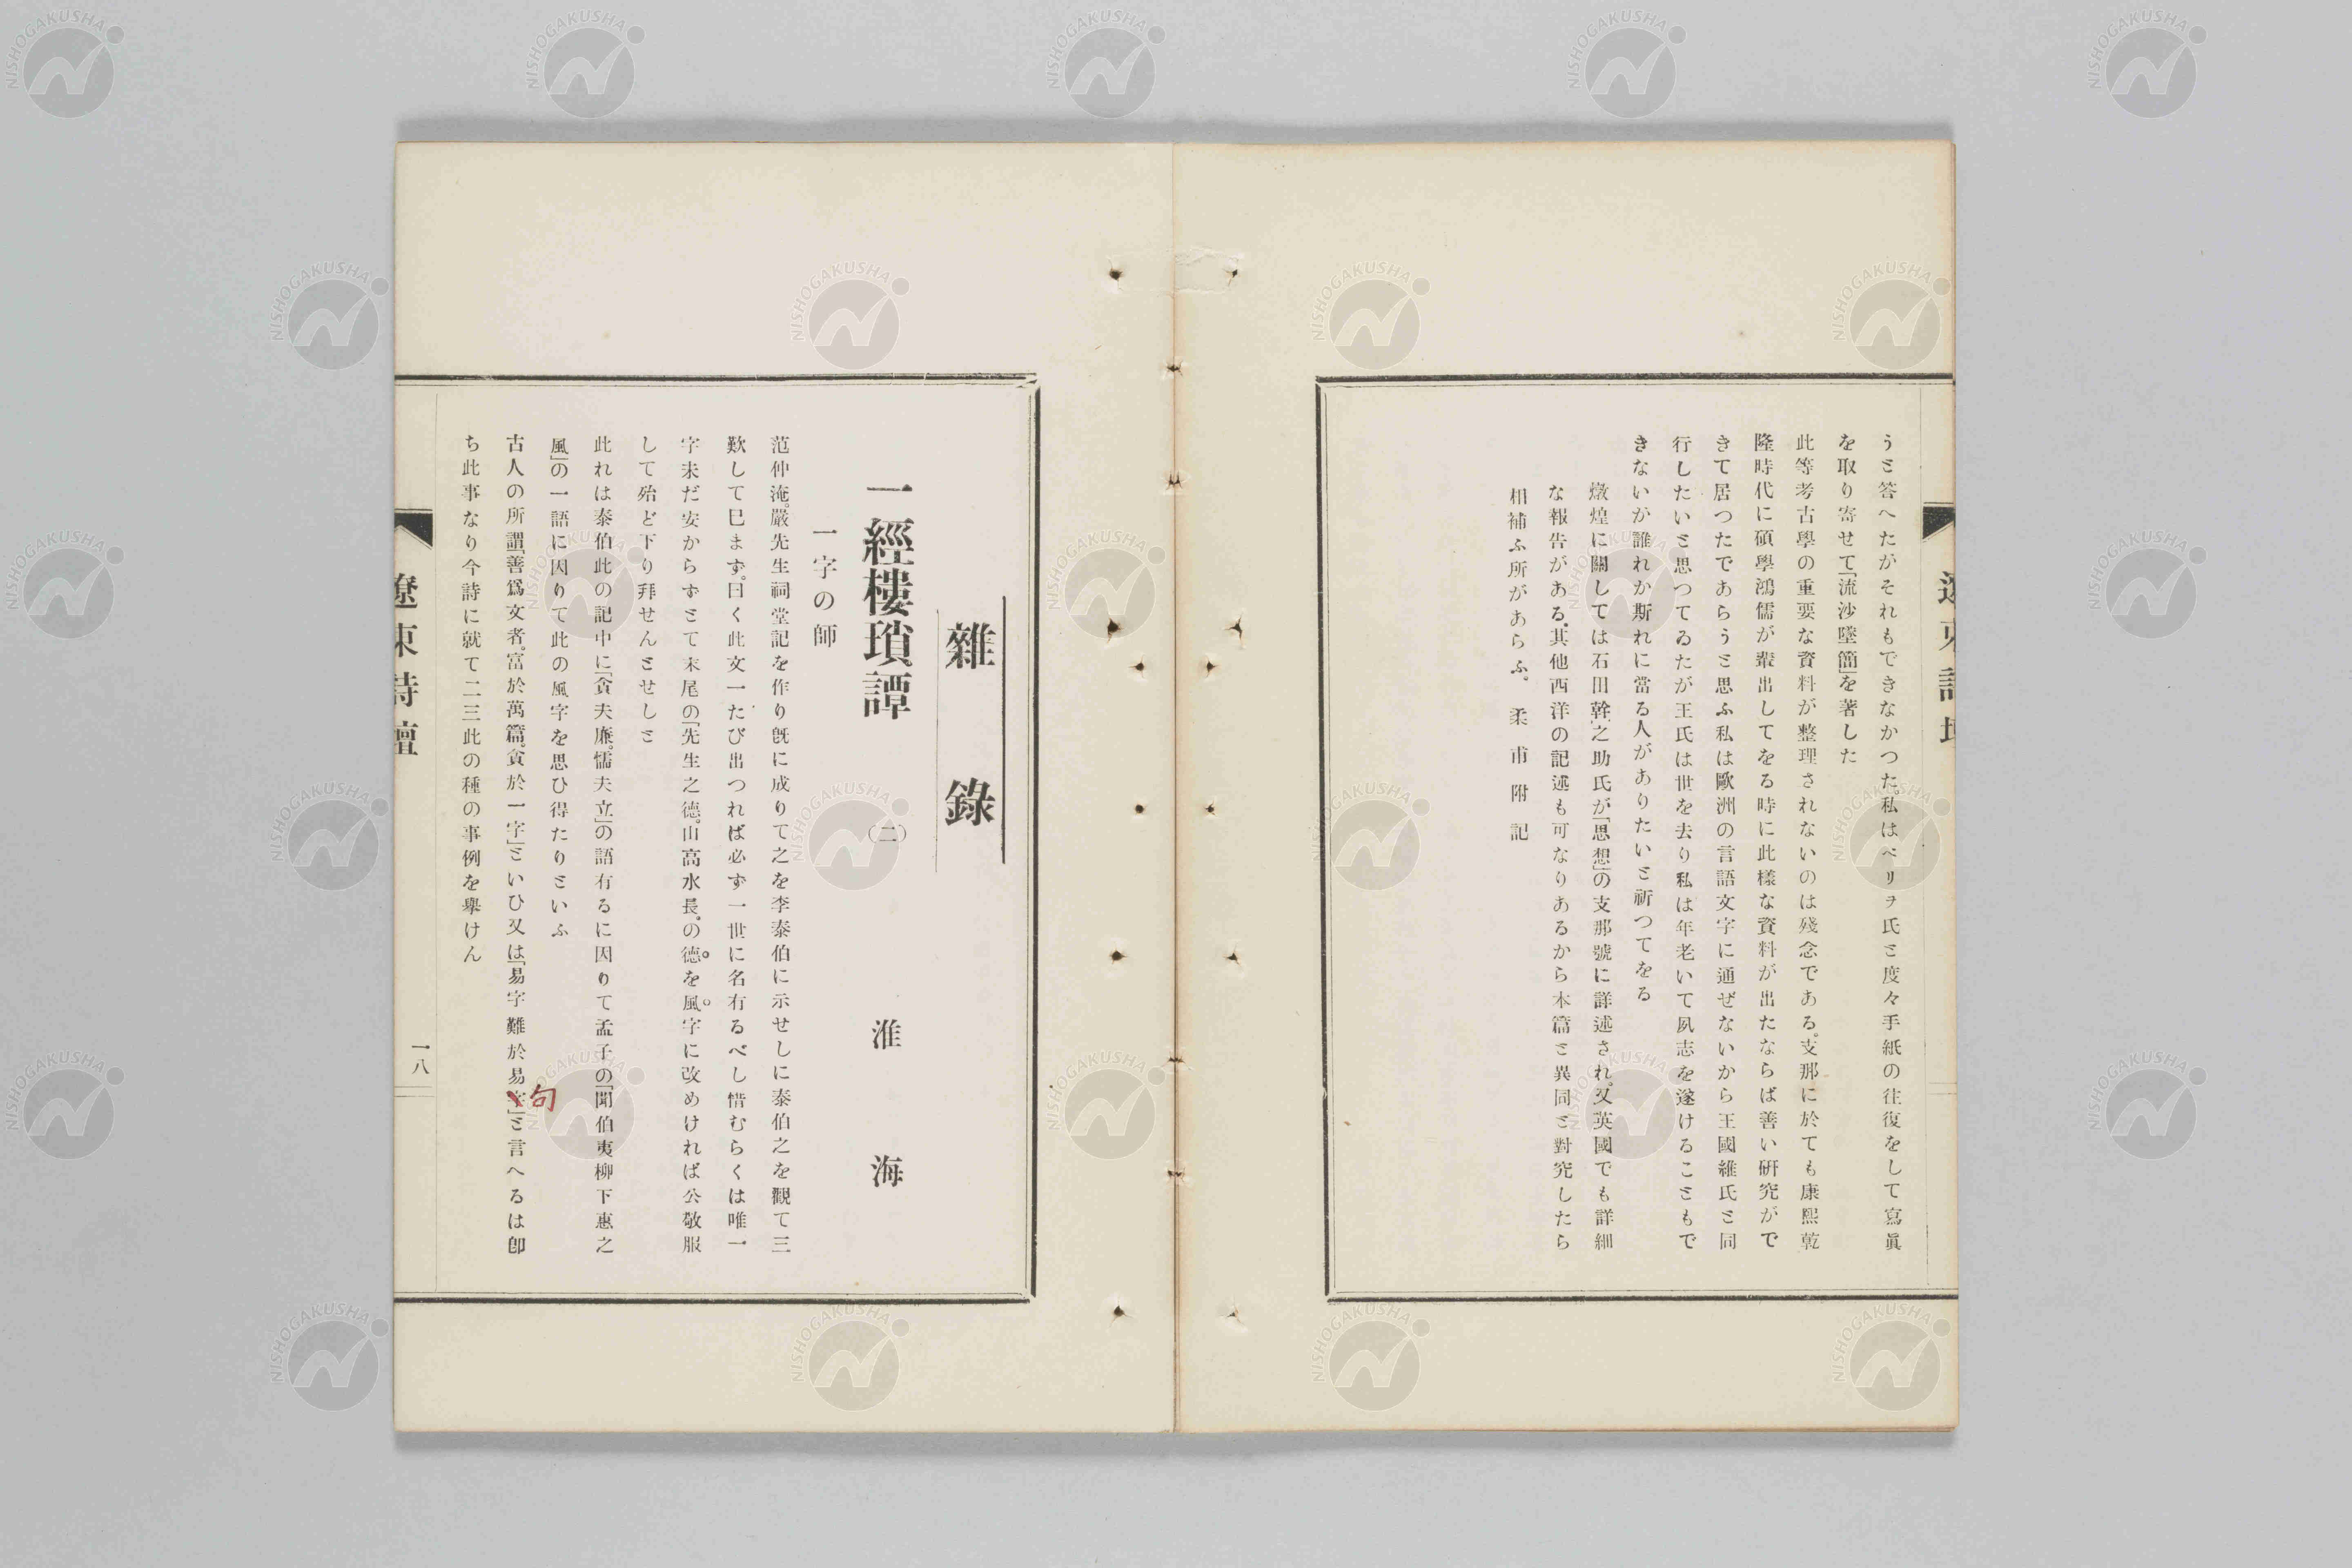 うと答へたがそれもできなかつた。私はペリヲ氏と度々手紙の往復をして寫眞
を取り寄せて「流沙墜簡」を著した
此等考古學の重要な資料が整理されないのは殘念である。支那に於ても康熙乾
隆時代に碩學鴻儒が叢出してをる時に此樣な資料が出たならば善い硏究がで
きて居つたであらうと思ふ私は歐洲の言語文字に通ぜないから王國維氏と同
行したいと思つてゐたが王氏は世を去り私は年老いて夙志を遂けることもで
きないが誰れか斯れに當る人がありたいと祈つてをる
燉煌に關しては石田幹之助氏が「思想」の支那號に詳述され。又英國でも詳細
な報告がある。其他西洋の記述も可なりあるから本篇と異同と對究したら
相補ふ所があらふ。 柔甫附記
遼東詩壇
雜錄
一經樓瑣譚 (二) 淮海
一字の師
范仲淹。嚴先生祠堂記を作り旣に成りて之を李泰伯に示せしに泰伯之を觀て三
歎して巳まず。曰く此文一たび出つれば必ず一世に名有るべし惜むらくは唯一
字未だ安からずとて末尾の「先生之德。山高水長。の德。を風。字に改めければ公敬服
して殆ど下り拜せんとせしと
此れは泰伯此の記中に「貪夫廉。懦夫立」の語有るに因りて孟子の「聞伯夷柳下惠之
風」の一語に因りて此の風字を思ひ得たりといふ
古人の所謂「善爲文者。富於萬篇。貧於一字」といひ又は「易字難於易字」と言へるは卽
句
ち此事なり今詩に就て二三此の種の事例を擧けん
遼東詩壇
一八
NISHOGAKUSHA